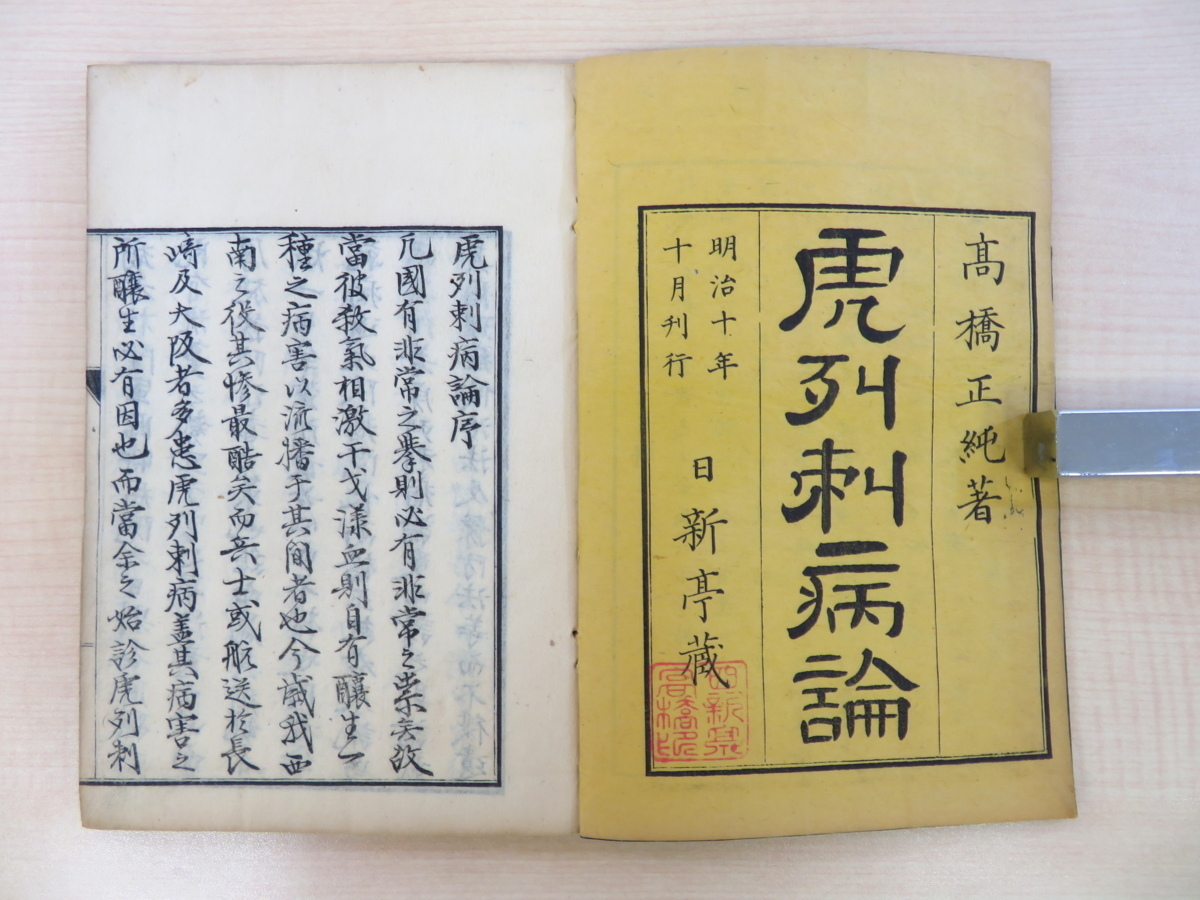 高橋正純著
虎列刺病論
明治十年
十月刊行
日新亭蔵
虎列刺病論序
凡國有非常之擧則必有非常之祟矣故
當彼殺氣相激干戈漾血則自有釀生一
種之病害以流播于其間者也今歳我西
南之役其惨最酷矣而兵士或航送於長
崎及大阪者多患虎列刺病盖其病害之
所釀生必有因也而當余之始診虎列刺